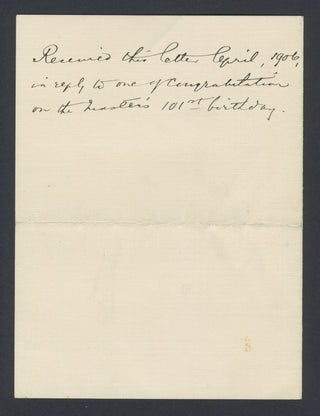 Received this letter April, 1906,
in reply to one of Congratulation
on the Master's 101st birthday.